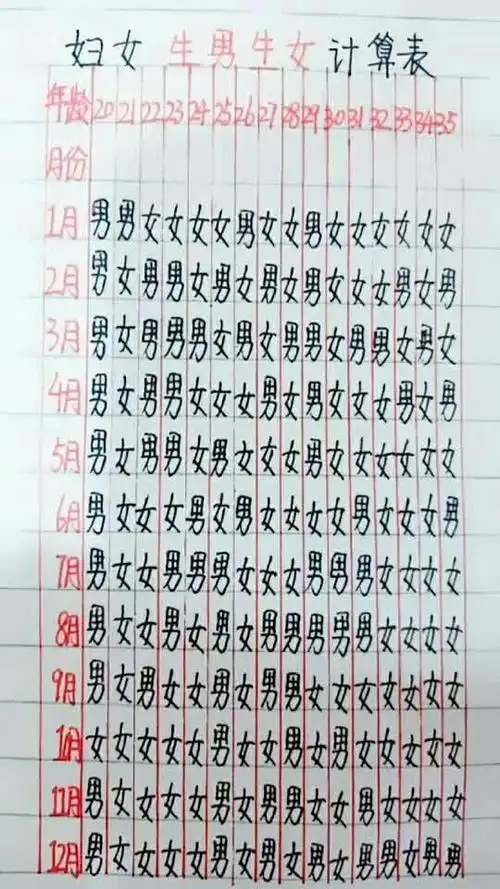 妇女 生男生女 计算表
年龄 20 21 22 23 24 25 26 27 28 29 30 31 32 33 34 35
月份
1月 男 男 女 女 女 女 男 女 女 男 女 女 女 女 女 女
2月 男 女 男 男 女 男 女 男 女 男 女 女 女 男 女 男
3月 男 女 男 男 男 女 男 女 男 男 女 男 男 女 男 女
4月 男 女 男 男 女 女 女 男 女 男 女 女 女 男 女 男
5月 男 女 男 男 女 男 女 女 女 男 女 女 女 女 女 女
6月 男 女 女 女 男 女 男 女 女 女 女 男 女 女 女 男
7月 男 女 女 男 男 男 女 女 女 男 男 男 女 女 女 女
8月 男 女 女 男 女 男 女 男 男 男 男 男 女 女 女 女
9月 男 女 男 女 女 男 女 男 男 女 女 女 女 女 女 女
1月 女 女 女 女 女 男 女 女 男 女 男 女 女 女 女 女
11月 男 女 女 女 女 男 女 男 男 女 女 男 女 女 女 女
12月 男 女 女 女 女 男 女 男 女 男 女 男 男 女 男 男